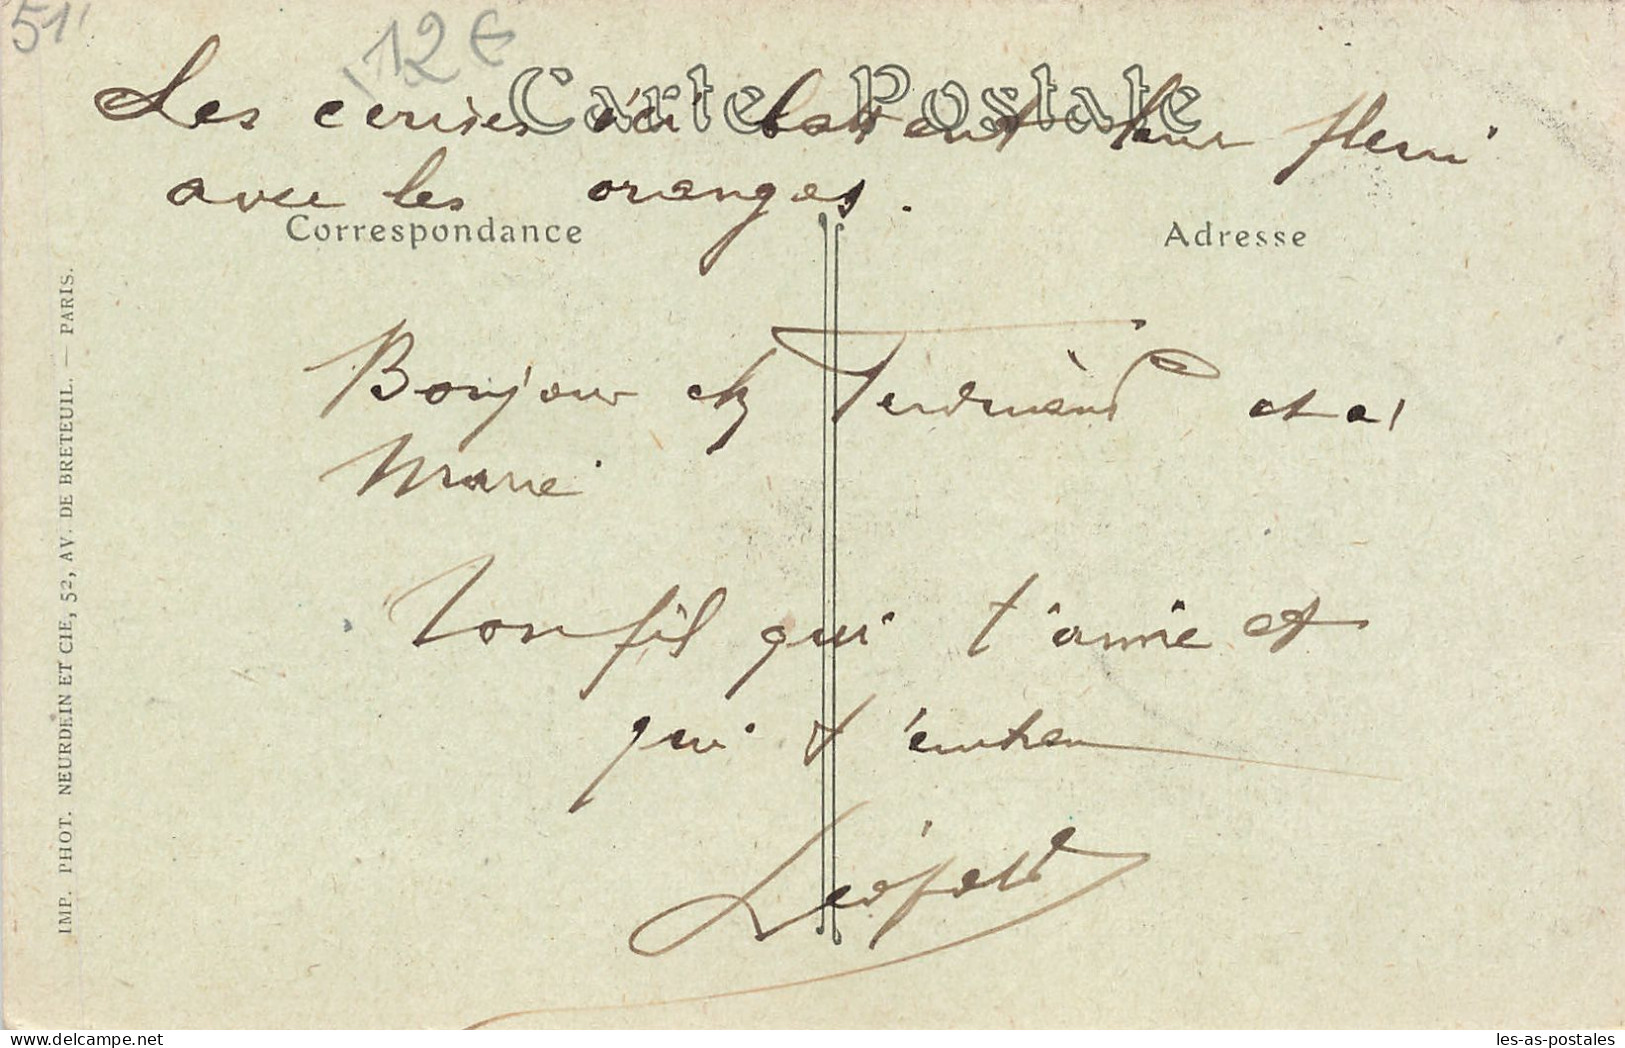 51
12€
Carte Postale
Les cerises ici battent leur fleuri
avec les oranges.
Correspondance
Adresse
Bonjour chez Ferdinand et a
Marie
Ton fil qui t'aime et
qui t'
Léopold
IMP. PHOT. NEURDEIN ET CIE, 52, AV. DE BRETEUIL. — PARIS.
delcampe.net
les-as-postales